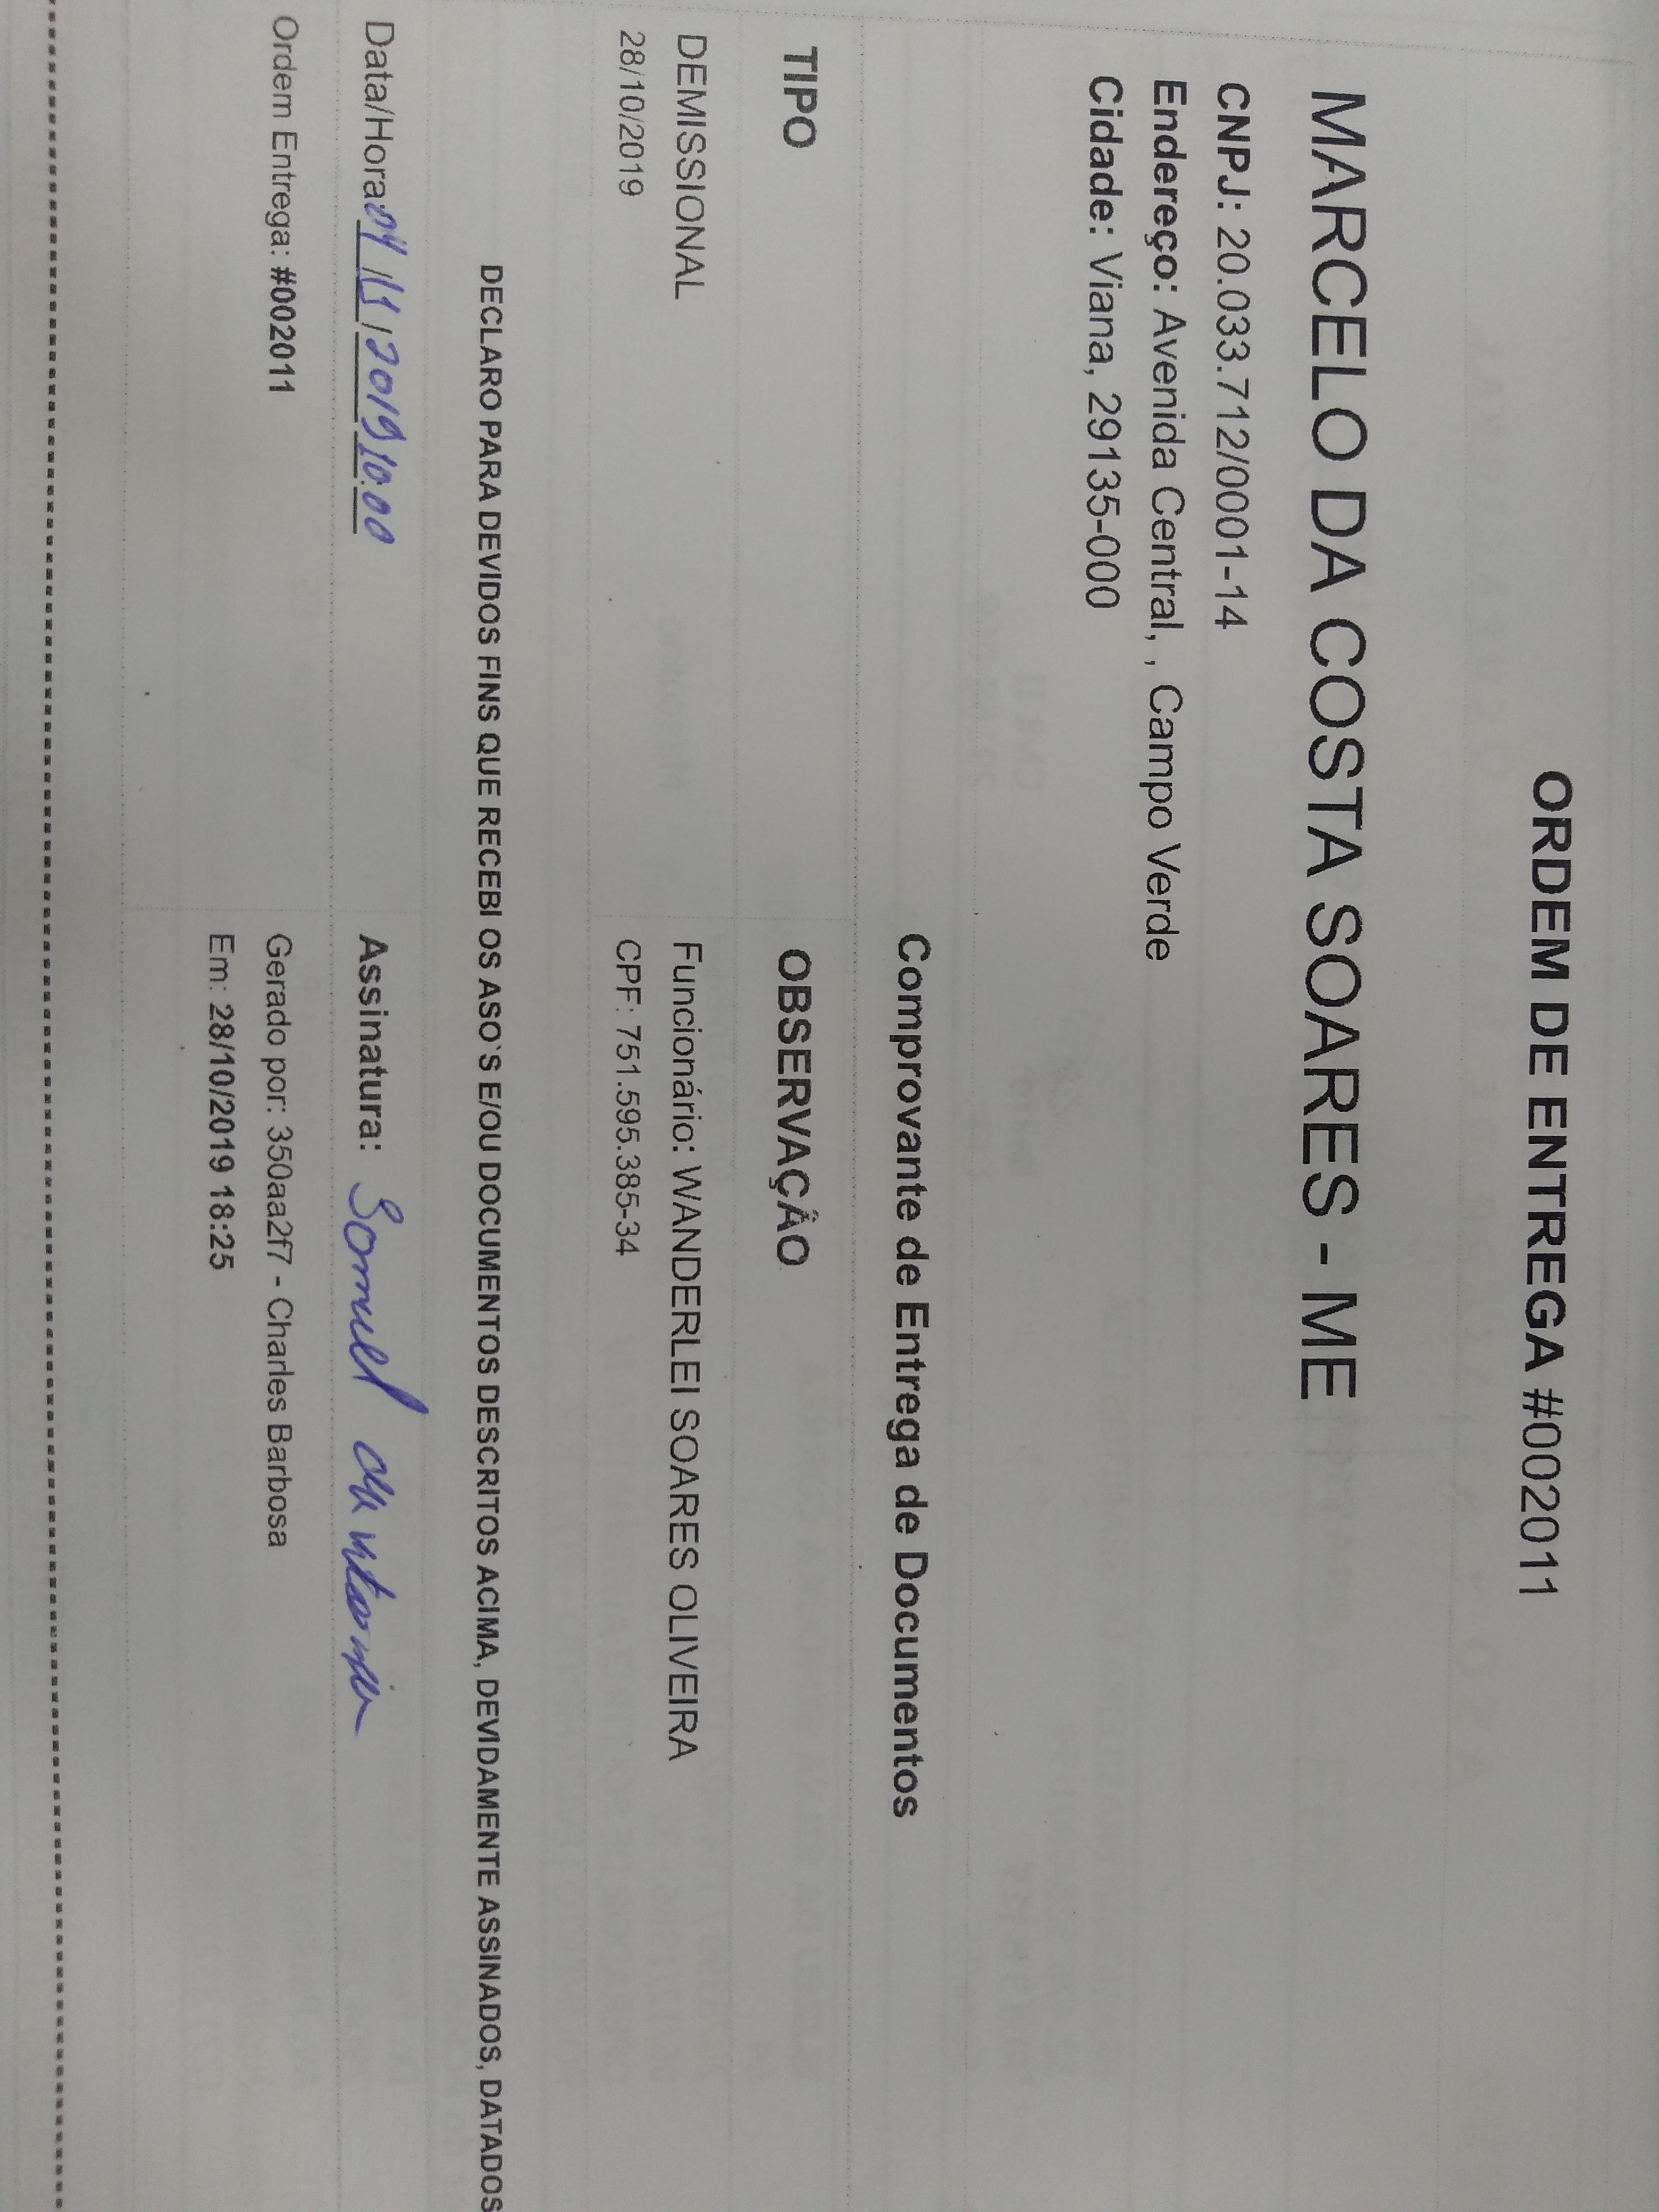 ORDEM DE ENTREGA #002011
MARCELO DA COSTA SOARES - ME
CNPJ: 20.033.712/0001-14
Endereço: Avenida Central, , Campo Verde
Cidade: Viana, 29135-000
Comprovante de Entrega de Documentos
TIPO
OBSERVAÇÃO
DEMISSIONAL
28/10/2019
Funcionário: WANDERLEI SOARES OLIVEIRA
CPF: 751.595.385-34
DECLARO PARA DEVIDOS FINS QUE RECEBI OS ASO`S E/OU DOCUMENTOS DESCRITOS ACIMA, DEVIDAMENTE ASSINADOS, DATADOS
Data/Hora: 04/11/2019 10:00
Assinatura:
Ordem Entrega: #002011
Gerado por: 350aa2f7 - Charles Barbosa
Em: 28/10/2019 18:25